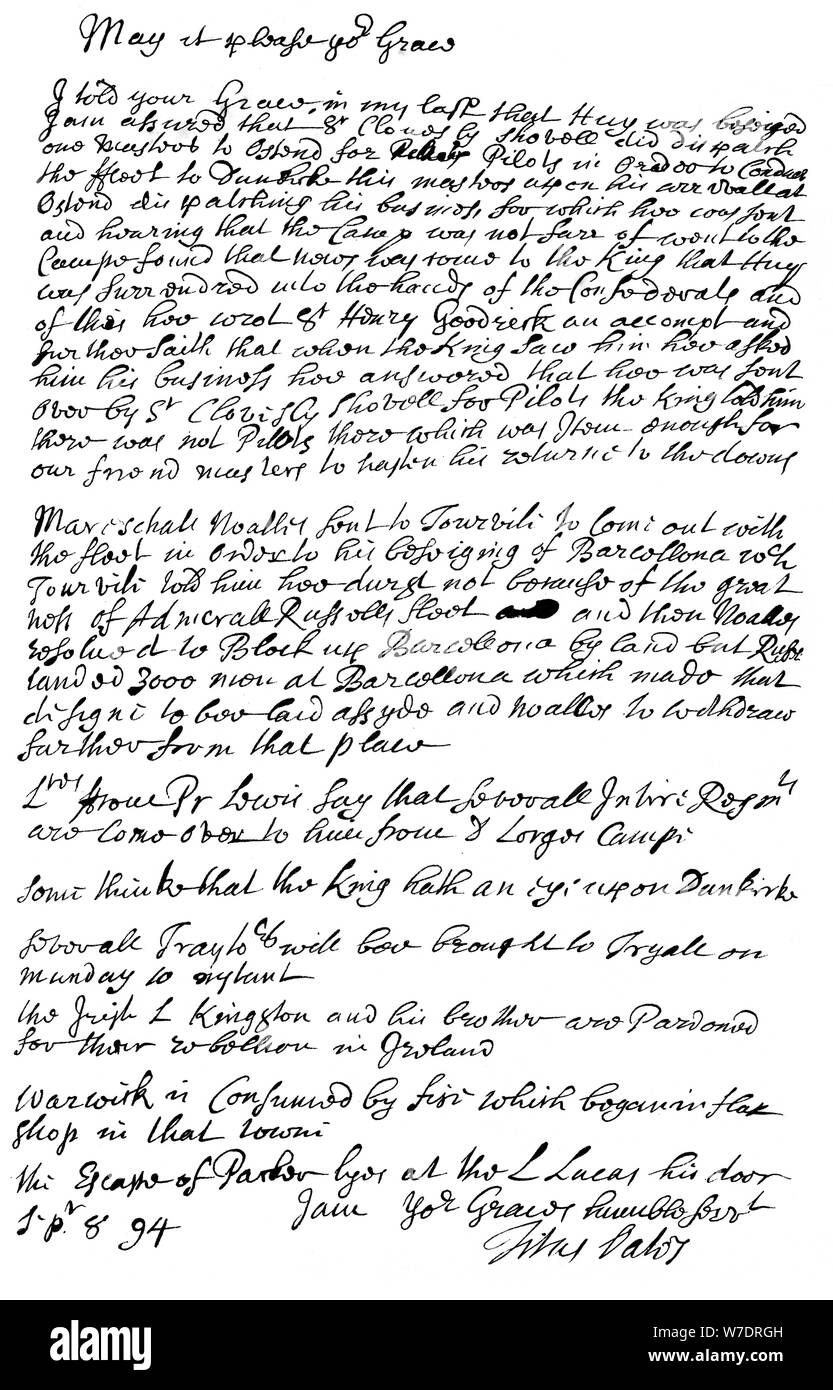 May it please yor Grace
I told your Grace in my last that Huy was beseiged
I am assured that Sr Clovesly Shovell did dispatch
one Masters to Ostend for Pilots in Order to Conduct
the ffleet to Dunkirke this masters upon his arrivall at
Ostend dispatching his business for which hee was sent
and hearing that the Camp was not farre of went to the
Campe found that news was come to the King that Huy
was surrendred into the hands of the Confederats and
of this hee wrot Sr Henry Goodrick an accompt and
further saith that when the King saw him hee asked
him his business hee answered that hee was sent
over by Sr Clovisly Shovell for Pilots the King told him
there was not Pilots there which was Item enough for
our friend masters to hasten his returne to the downs
Mareschall Noalles sent to Tourvili to Come out with
the fleet in Order to his beseiging of Barcellona wch
Tourvili told him hee durst not becaus of the great
ness of Admerall Russells fleet and then Noalles
resolued to Block up Barcellona by land but Russ
landed 3000 men at Barcellona which made that
designe to bee laid assyde and Noalles to withdraw
farther from that place
Ltres from Pr Lewis say that severall Intire Regmts
are Come over to him from d Lorges Campe
some thinke that the King hath an eye upon Dunkirke
severall Traytors will bee brought to Tryall on
munday 10 instant
the Irish L Kingston and his brother are Pardoned
for their rebellion in Ireland
Warwick is Consumed by fire which began in flax
shop in that towne
the Escape of Parker lyes at the L Lucas his door
I am Yor Graces humble servt
Sepr 8 94
Titus Oates
alamy
a
alamy
Image ID: W7DRGH
www.alamy.com